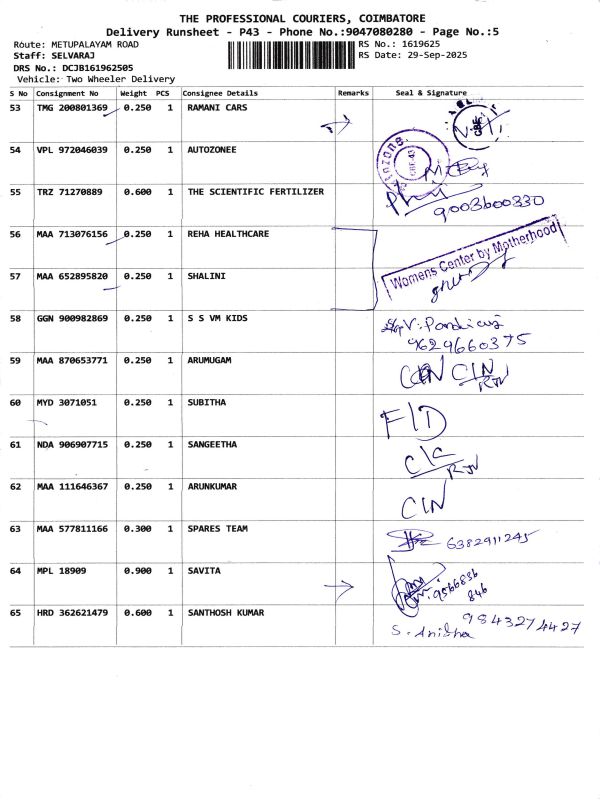 THE PROFESSIONAL COURIERS, COIMBATORE
Delivery Runsheet - P43 - Phone No.:9047080280 - Page No.:5
Route: METUPALAYAM ROAD
RS No.: 1619625
Staff: SELVARAJ
RS Date: 29-Sep-2025
DRS No.: DCJB161962505
Vehicle: Two Wheeler Delivery
S No Consignment No Weight PCS Consignee Details Remarks Seal & Signature
53 TMG 200801369 0.250 1 RAMANI CARS
54 VPL 972046039 0.250 1 AUTOZONEE
55 TRZ 71270889 0.600 1 THE SCIENTIFIC FERTILIZER
9003600330
56 MAA 713076156 0.250 1 REHA HEALTHCARE
Womens Center by Motherhood
57 MAA 652895820 0.250 1 SHALINI
58 GGN 900982869 0.250 1 S S VM KIDS
9629660375
59 MAA 870653771 0.250 1 ARUMUGAM C/N
60 MYD 3071051 0.250 1 SUBITHA F/D
61 NDA 906907715 0.250 1 SANGEETHA
62 MAA 111646367 0.250 1 ARUNKUMAR C/N
63 MAA 577811166 0.300 1 SPARES TEAM 6382911245
64 MPL 18909 0.900 1 SAVITA 9566836
846
65 HRD 362621479 0.600 1 SANTHOSH KUMAR 9843274427